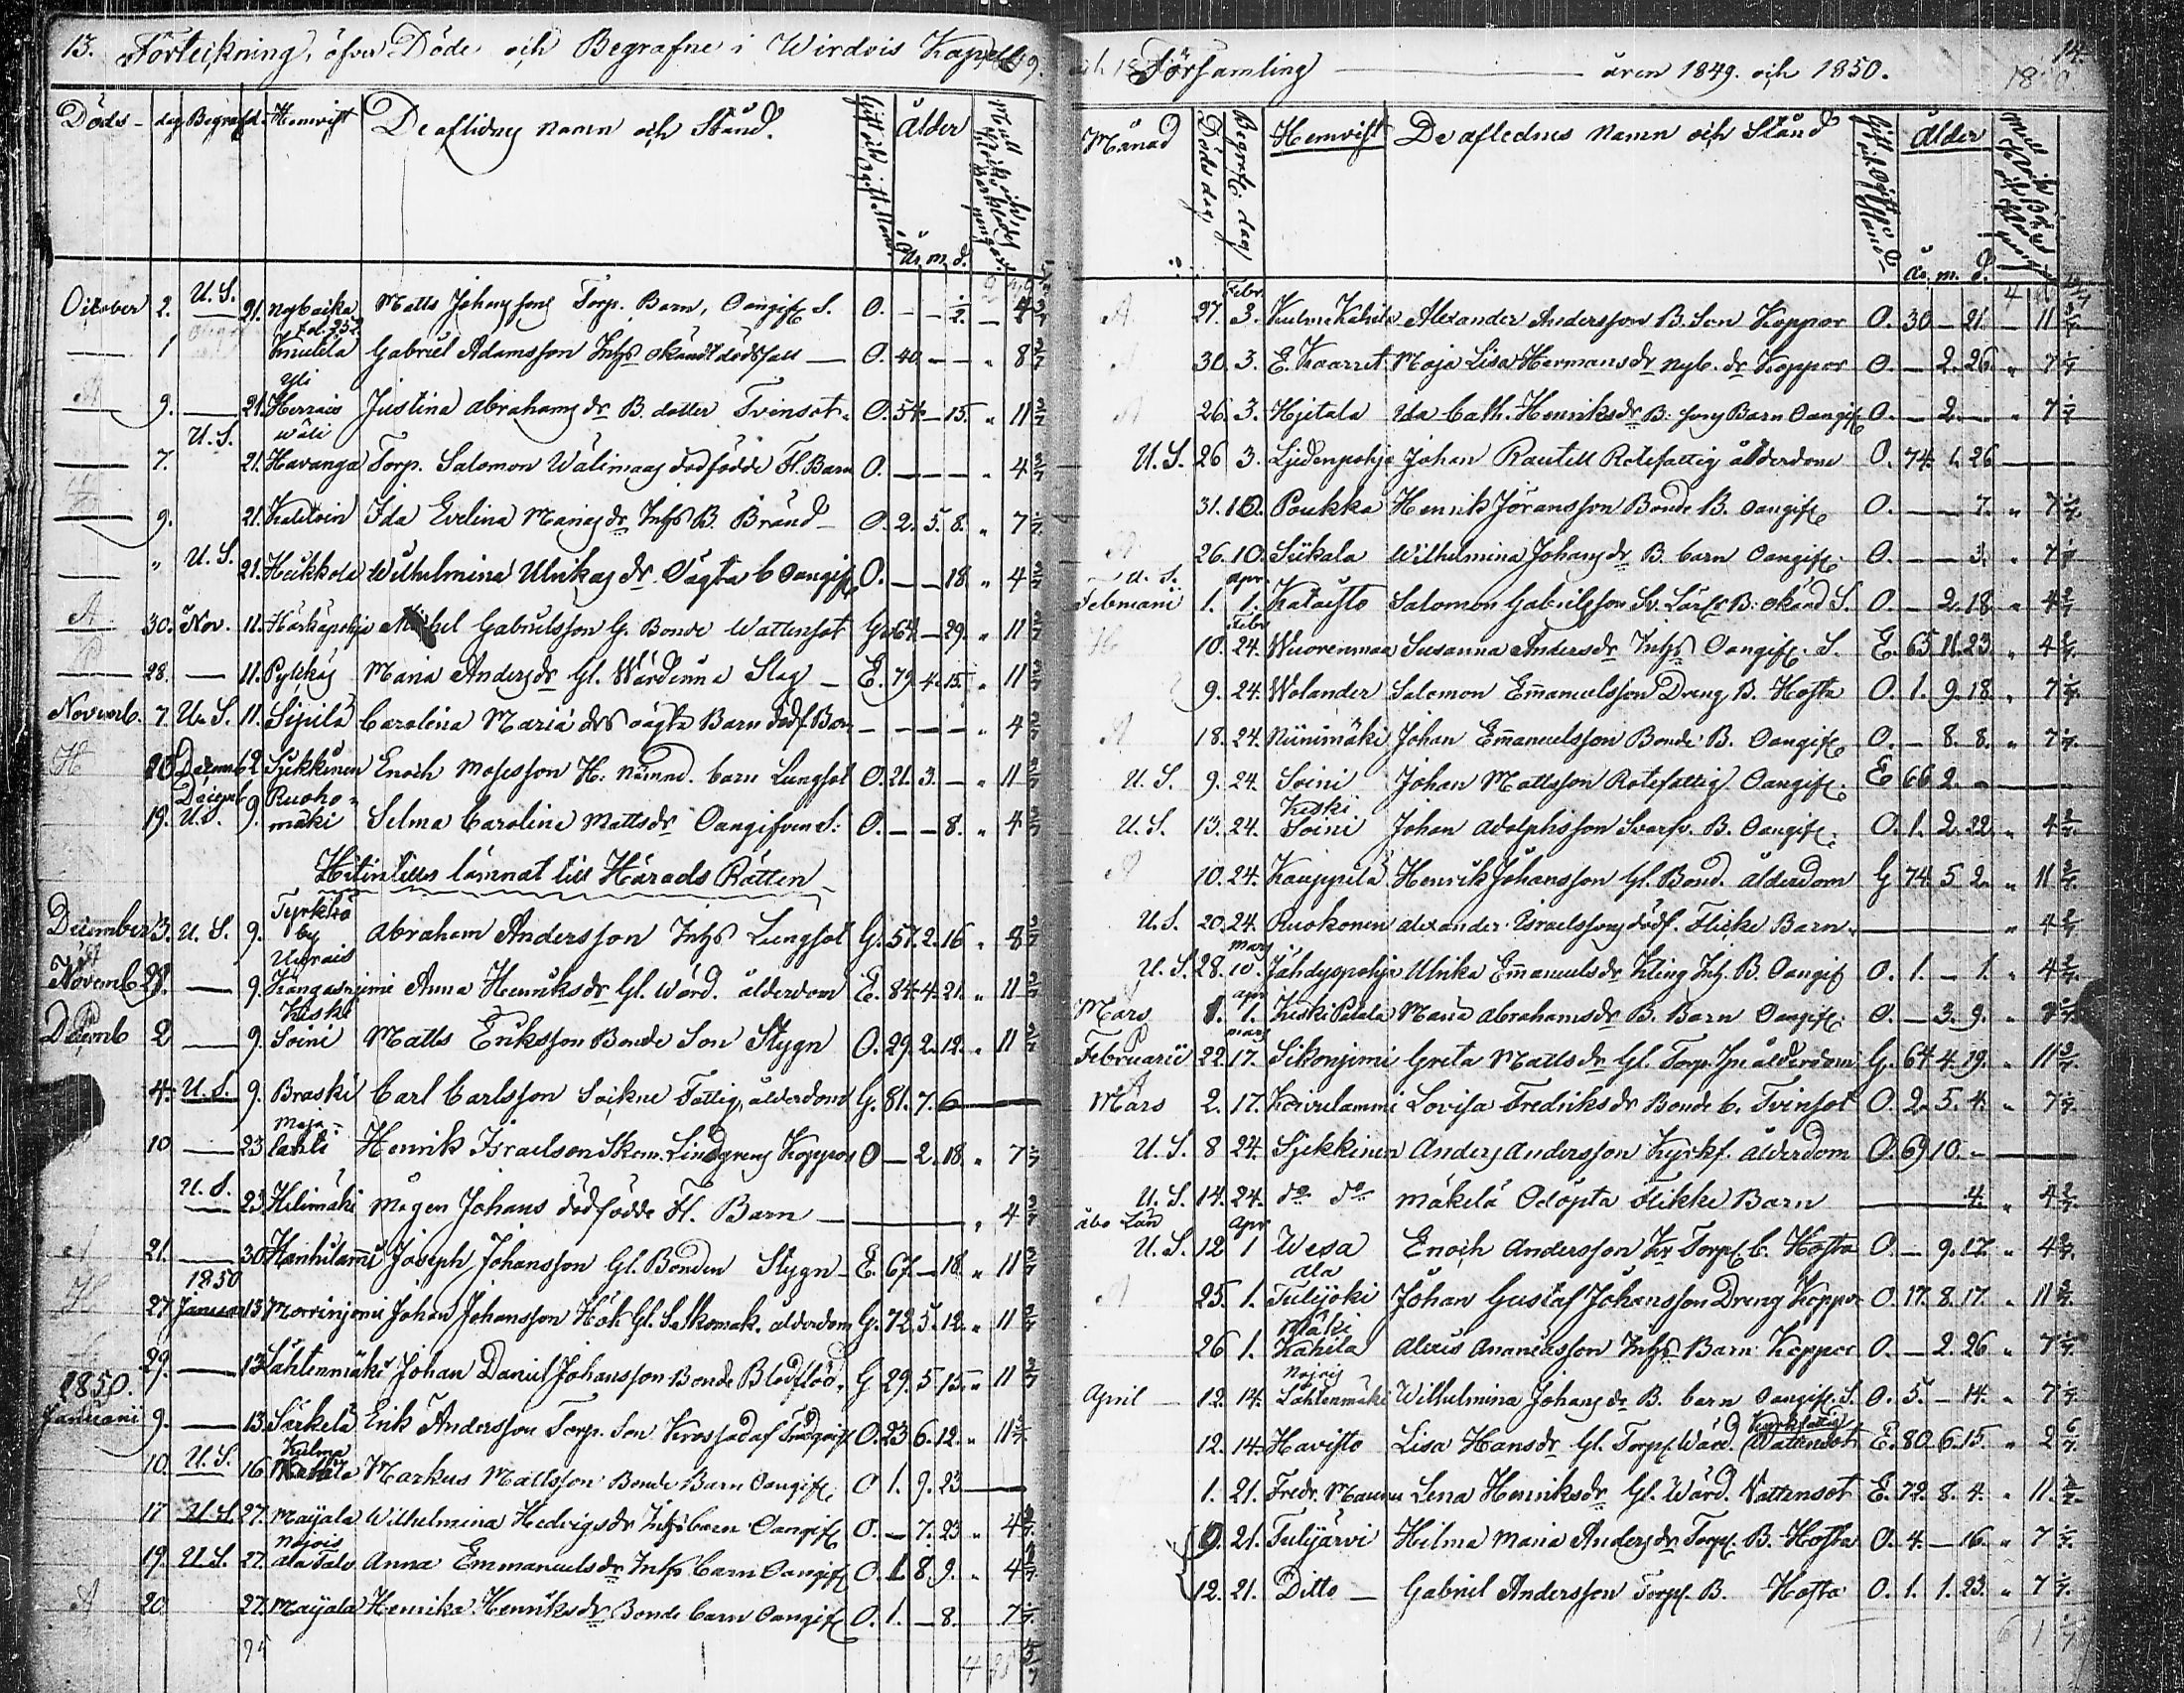 13. Förteckning, öfver Döde och Begrafne i Wirdois Kapell
Döds- dag Begrafd. Hemvist De aflidnes namn och Stånd. Ålder
år. m. d.
October 2. U. S. 21. Matts Johanssons Torp. Barn, Oangift S. O. - -
Fol. 252
1 Knulila Gabriel Adamsson Inhs okändt dödsfall O. 40. - - 8 2/7
Yli
A 9. 21. Herrais Justina Abrahams dr B. dotter Tvinsot. O. 54. - 15. 11 3/7
U. S. Wäli
7. 21. Havanga Torp. Salomon Wälimaas dödfödde Fl. Barn O. - - - 4 2/7
9. 21. Ida Evelina Marias dr Inhs B. Bränd O. 2. 5. 8. 7 1/7
" U. S. 21. Heikkola Wilhelmina Ulrikas dr Oägta b Oangift O. - - 18. 4 2/7
A 30. Nov. 11. Härkäpohja Michel Gabrielsson G. Bonde Wattensot G. 64. - 29. 11 3/7
28. 11. Pylkäs Maria Anders dr Gl. Wärdinna Slag E. 79. 4. 15. 11 3/7
Novemb. 7. U. S. 11. Sipilä Carolina Mariæ drs oägta Barn dödf. - - - 4 2/7
H 2. Sjekkinen Enoch Mosesson H. Nämnd. barn Lungsot O. 21. 3. - 11 3/7
Decemb Ruoho-
19. U. S. 9. mäki Selma Carolina Matts dr Oangifven S. O. - - 8. 4 2/7
Hitintills lämnat till Härads Rätten
Tyrkkö
December 3. U. S. 9. by Abraham Andersson Inhs Lungsot G. 57. 2. 16 8 2/7
Uurais
Novemb. 28. 9. Kangasniemi Anna Henriks dr Gl. Wärd. ålderdom E. 84. 4. 21. 11 3/7
Keski
Decemb 2 9. Soini Matts Eriksson Bonde Son Stygn O. 29. 2. 12. 11 3/7
4. U. S. 9. Braski Carl Carlsson Sockne Fattig, ålderdom G. 81. 7. 6
Maja-
10 23 lahti Henrik Israelson Skom. Lindgrens Koppor O - 2. 18. 7 1/7
U. S. 23 Kilimäki Mågen Johans dödfödde Fl. Barn 4 2/7
A 21. 30 Hanhilammi Joseph Johansson Gl. Bonden Stygn E. 67. - 18. 11 3/7
1850
H 27. Januar 13 Johan Johansson Gl. ålderdom G. 72. 5. 12. 11 3/7
29. 13 Lahtenmäki Johan Daniel Johansson Bonde Blodflöd. G 29. 5 15. 11 3/7
1850.
Januarii 9. 13. Särkelä Erik Andersson Torp. Son Krossad af O. 23 6. 12. 11 3/7
Kulma
10. U. S. 16 Kahila Markus Mattsson Bonde Barn Oangift. O 1. 9. 23
17 U. S. 27. Maijala Wilhelmina Hedvigs dr Inhs barn Oangift O. - 7. 23 4 2/7
Nojois
19. U. S. 27. ala Talo Anna Emmanuels dr Inhs barn Oangift O. 1. 8. 9. 4 2/7
A 20 27. Maijala Henrika Henriks dr Bonde barn Oangift O. 1. - 8. 7 1/7
Församling åren 1849. och 1850.
14.
Månad Döds dag Begrafn. dag Hemvist De aflednes Namn och Stånd Ålder
år. m. d.
Febr.
A 27. 3. Kulma Kahila Alexander Andersson B. Son Koppor O. 30 - 21. 11 3/7
A 30. 3. E. Kaarret Maja Lisa Hermans dr nyb. dr Koppor O. - 2. 26. 7 1/7
A 26. 3. Hjetala Ida Cath. Henriks dr B. sons Barn Oangift O. - 2. - 7 1/7
U. S. 26 3. Ljedenpohja Johan Rautell Rotefattig ålderdom O. 74. 1. 26
31. 10. Poukka Henrik Göransson Bonde B. Oangift O. - - 7. 7 1/7
A 26. 10. Siikala Wilhelmina Johans dr B. barn Oangift. O. - - 3. 7 1/7
U. S. Apr.
Februarii 1. 1. Kataisto Salomon Gabrielsson B. okänd S. O. - 2. 18. 4 2/7
Febr
H 10. 24. Wuorenmaa Susanna Anders dr Inhs Oangift. S. E. 65 11. 23. 4 2/7
9. 24. Wolander Salomon Emanuelsson Dreng B. Hosta O. 1. 9. 18. 7 1/7
A 18. 24. Niinimäki Johan Emanuelsson Bonde B. Oangift. O. - 8. 8. 7 1/7
U. S. 9. 24. Soini Johan Mattsson Rotefattig Oangift. E 66 2. -
Keski
U. S. 13. 24. Soini Johan Adolphsson Svarfv. B. Oangift. O. 1. 2. 22. 4 2/7
A 10. 24. Kauppila Henrik Johansson Gl. Bond. ålderdom G 74. 5 2. 11 3/7
U. S. 20. 24. Ruokonen Alexander Israelssons dödf. Flicke Barn. 4 2/7
Mars
U. S. 28. 10. Jähdyspohja Ulrika Emanuels dr Kling Inh. B. Oangif O. 1. - 1. 4 2/7
Apr
Mars 1. 1. Keski Patala Maria Abrahams dr B. Barn Oangift. O. - 3. 9.
P Mars
Februarii 22. 17. Greta Matts dr Gl. Torp. In ålderdom G. 64 4. 19. 11 3/7
A
Mars 2. 17. Koivulammi Lovisa Fredriks dr Bonde b. Tvinsot O. 2. 5. 4. 7 1/7
U. S. 8 24. Sjekkinen Anders Andersson Kyrkf. ålderdom O. 69 10. -
U. S. 14. 24. do do Mäkelä Odöpta Flikke Barn 4. 4 2/7
åbo Län Apr
U. S. 12 1 Wesa Enoch Andersson Torp. b. Hosta O. - 9. 17. 4 2/7
ala
A 25. 1. Tulijoki Johan Gustaf Johansson Dreng Koppor O. 17. 8. 17. 11 3/7
Mäki
26 1. Kahila Alexis Ananiasson Inhs Barn Koppor O. - 2. 26 7 1/7
Nojois
April 12. 14. Lahtenmäki Wilhelmina Johans dr B. barn Oangift. S. O. 5. - 14. 7 1/7
Kyrkfattig
12. 14. Havisto Lisa Hans dr Gl. Torp. Wärd. Wattensot E. 80. 6. 15. 2 6/7
1. 21. Fredr. Lena Henriks dr Gl. Wärd. Vattensot E. 72. 8. 4. 11. 3/7
9. 21. Tulijärvi Hilma Maria Anders dr Torp. B. Hosta O. 4. - 16. 7 1/7
12. 21. Ditto Gabriel Andersson Torp. B. Hosta O. 1. 1. 23. 7 1/7